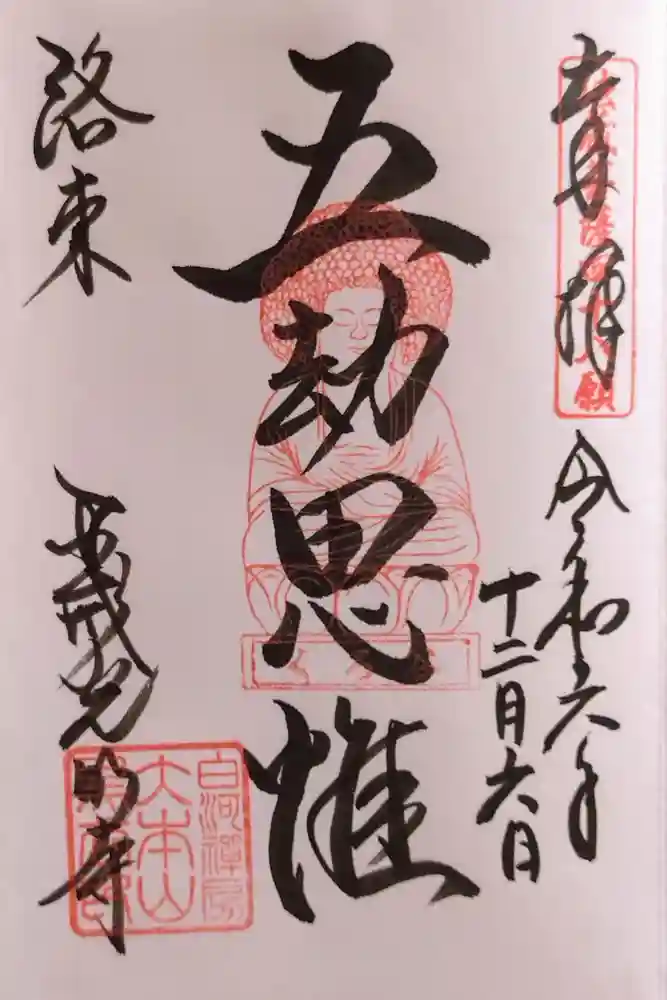 奉拝
令和六年
十二月六日
五劫思惟
洛東
金戒光明寺
白河禪房
大本山